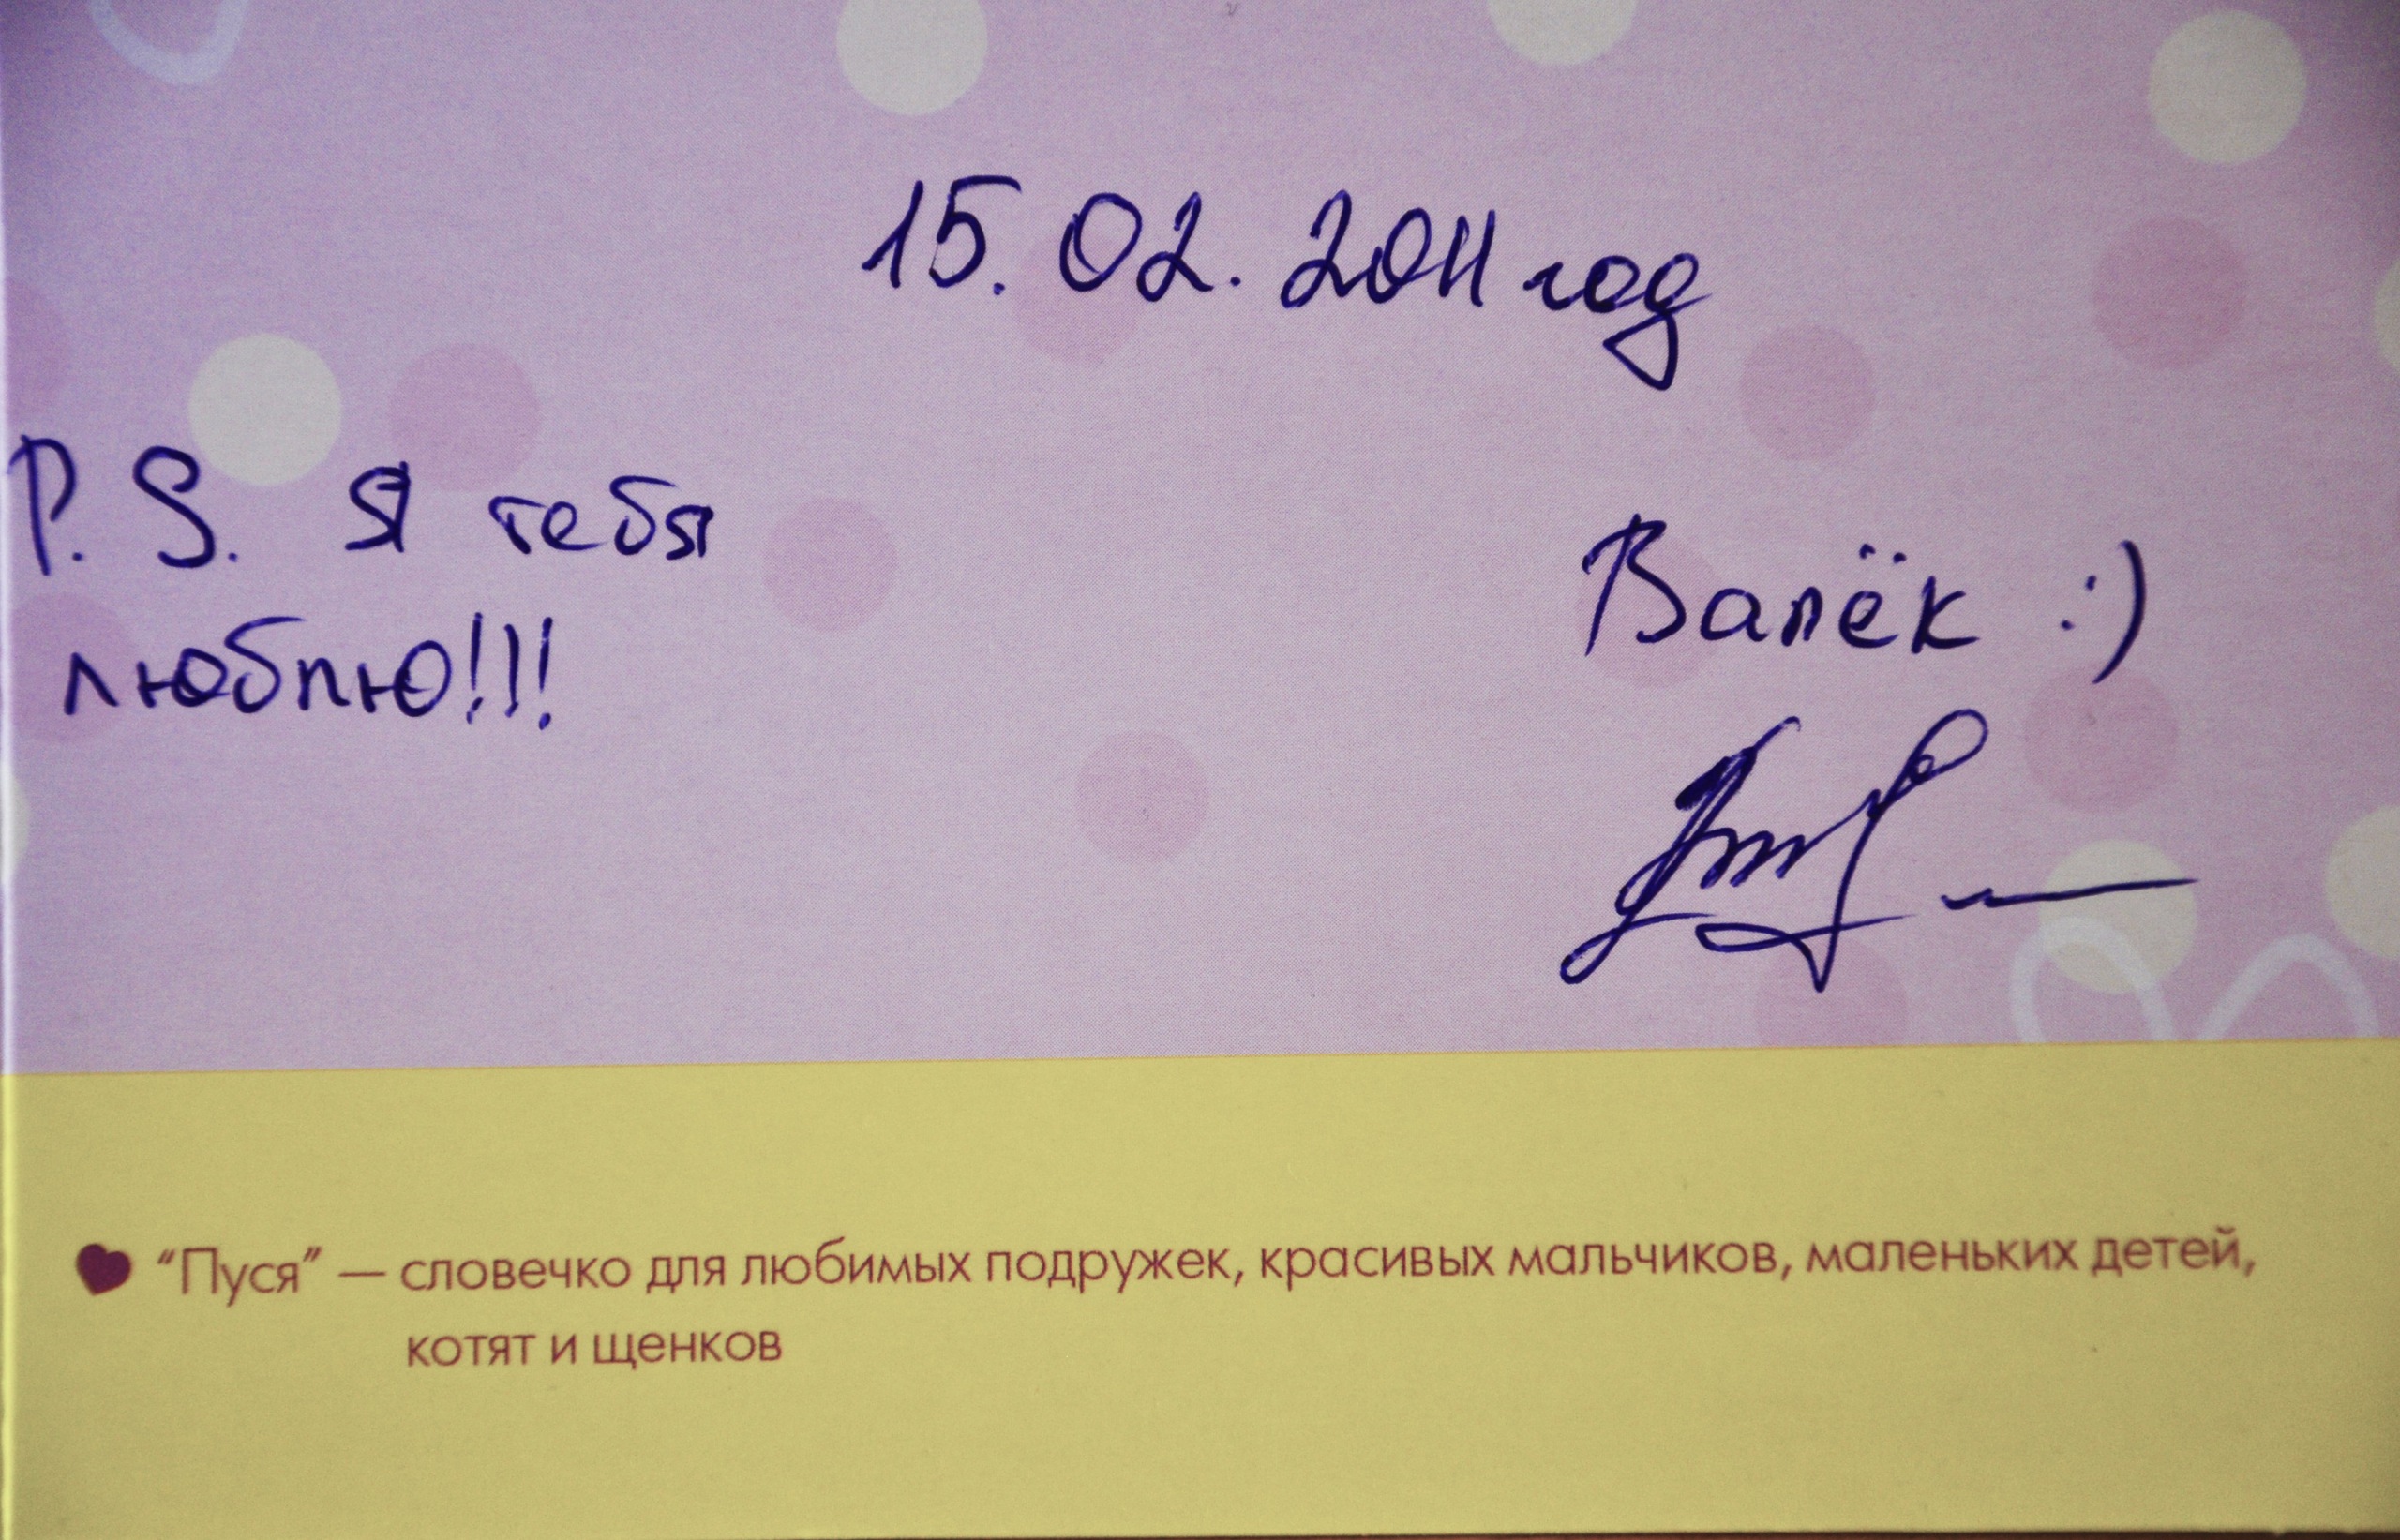 15.02.2011 год
P.S. Я тебя
люблю!!!
Валёк :)
“Пуся” — словечко для любимых подружек, красивых мальчиков, маленьких детей,
котят и щенков